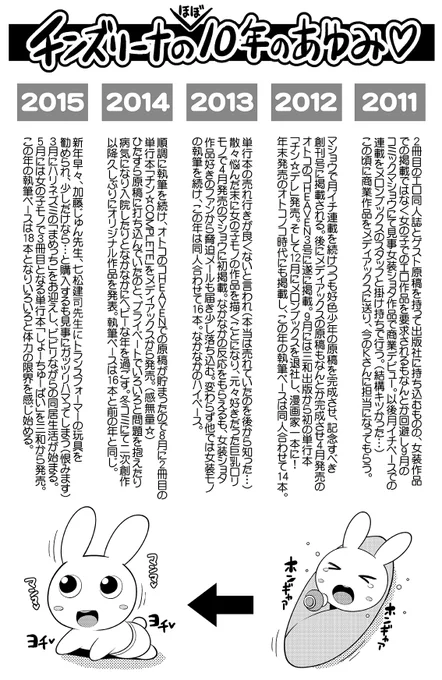 チンズリーナのほぼ10年のあゆみ♡
2011
2冊目のエロ同人誌とゲスト原稿を持って出版社に持ち込むものの、女装作品
での掲載ではなく女の子でのエロ作品を要求されるもなんとか回避し9月の
コミックマショウにて見事女装ショタ作品で商業デビュー。以後月イチペースでの
連載をメロンブックスのスタッフと掛け持ちで行う。(結構キツかった…)
この頃に商業作品をメディアックスに送り、今のKさんに担当になってもらう。
2012
マショウで月イチ連載を続けつつも好色少年の原稿を完成させ、記念すべき
創刊号に掲載される。後にメディアックスの原稿もなんとか完成させ4月発売の
オトコのコHEAVEN3冊に遂に掲載。9月には三和出版から初の単行本
「チン×テレ」発売。そして12月にメロンブックスを退社し、漫画家一本に!
年末発売のオトコのコ時代にも掲載し、この年の執筆ペースは同人合わせて14本。
2013
単行本の売れ行きが良くないと言われ(本当は売れていたのを後から知った…)
散々悩んだ末に女の子モノの作品を描くことになり、元々好きだった巨乳ロリ
モノで4月発売のマショウに初掲載。なかなかの反応をもらえるも、女装ショタ
作品好きのファンから脅迫メールも届き少し落ち込む。変わらず他では女装モノ
の執筆を続け、この年は同人合わせて16本。なかなかのハイペース。
2014
順調に執筆を続け、オトコのコHEAVENでの原稿が貯まったので8月に2冊目の
単行本「チン☆COMPLETE」をメディアックスから発売。(感無量☆)
ひたすら原稿に打ち込んでいたのと、プライベートでいろいろと問題を抱えたり
病気になり入院したりとなかなかにヘビーな年を過ごす。冬コミにて二次創作
以降久しぶりにオリジナル作品を発表。執筆ペースは16本と前の年と同じ。
2015
新年早々、加藤じゅん先生、七松建司先生にトランスフォーマーの玩具を
勧められ、少しだけなら…と購入するも見事にガッツリハマってしまう(恨みます)
3月にハリネズミの「まめっち」をお迎えし、ビビりながらの同居生活が始まる。
5月には女の子モノで3冊目となる単行本「しょーちゅーぱい」を三和から発売。
この年の執筆ペースは18本となりいろいろと体力の限界を感じ始める。
ホンギャァ
ホンギャァ
ヨチ
ヨチ